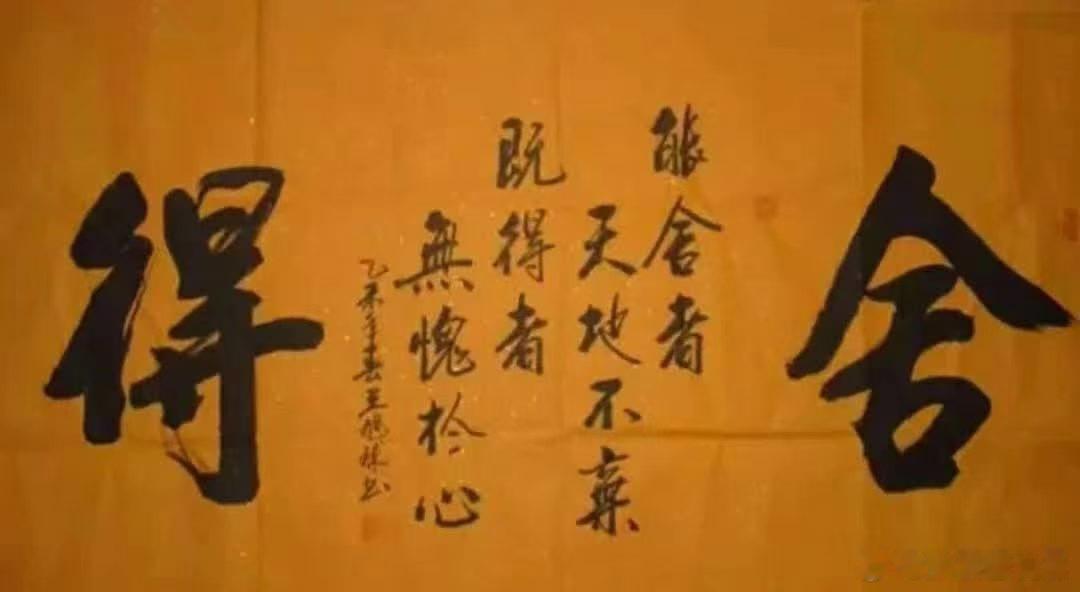 舍
能舍者
天地不棄
既得者
無愧於心
乙未年春王
得